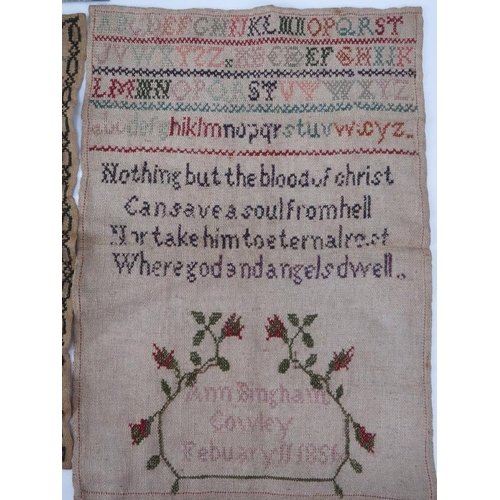 ABCDEFGHIJKLMNOPQRST
UVWXYZ ABCDEFGHIJK
LMNNOPQRSTUVWXYZ
abcdefghiklmnopqrstuvwxyz
Nothing but the blood of christ
Can save a soul from hell
Nor take him to eternal rest
Where god and angels dwell
Ann Bingham
Cowley
Febuary 11 1856